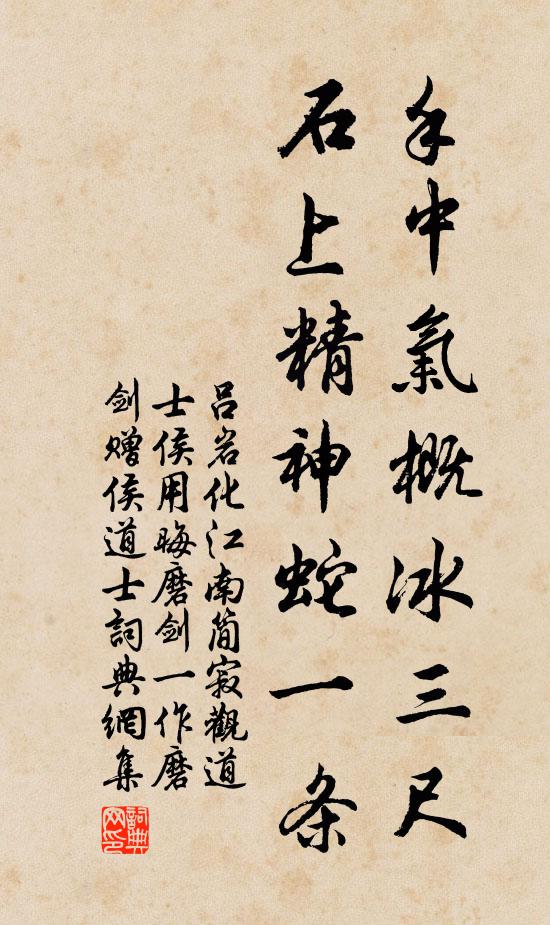 手中氣概冰三尺
石上精神蛇一条
吕岩化江南簡寂觀道
士侯用晦磨劍一作磨
劍赠侯道士詞典網集
詞典网印